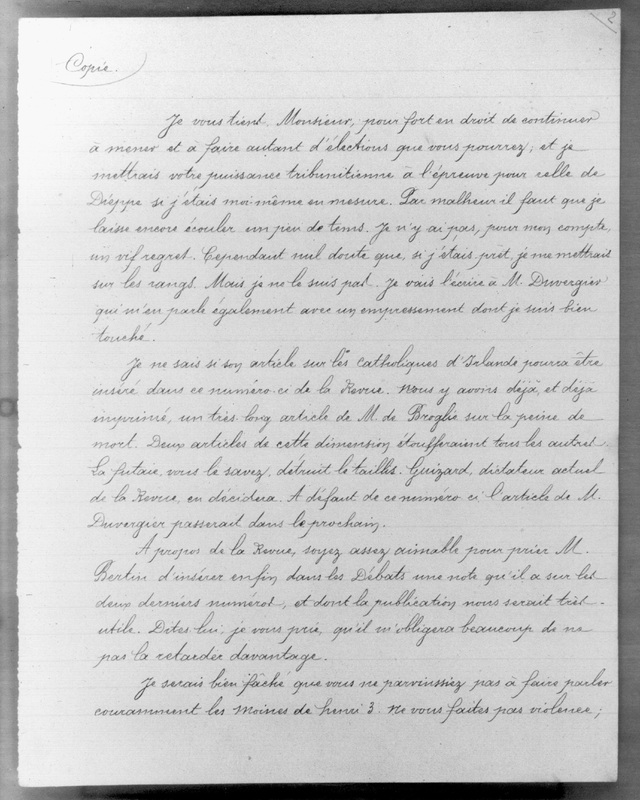 2
Copie.
Je vous tient Monsieur, pour fort en droit de continuer
à mener et à faire autant d'élections que vous pourrez; et je
mettrais votre puissance tribunitienne à l'épreuve pour celle de
Dieppe si j'étais moi même en mesure. Par malheur il faut que je
laisse encore écouler un peu de tems. Je n'y ai pas, pour mon compte,
un vif regret. Cependant nul doute que, si j'étais prêt, je me mettrais
sur les rangs. Mais je ne le suis pas. Je vais l'écrire à M. Duvergier
qui m'en parle également avec un empressement dont je suis bien
touché.
Je ne sais si son article sur les Catholiques d'Irlande pourra être
inséré dans ce numéro-ci de la Revue. Nous y avons déjà, et déjà
imprimé, un très long article de M. de Broglie sur la peine de
mort. Deux articles de cette dimension étoufferaient tous les autres.
La futaie, vous le savez, détruit le taillis. Guizard, dictateur actuel
de la Revue, en décidera. A défaut de ce numéro ci l'article de M.
Duvergier passerait dans le prochain.
A propos de la Revue, soyez assez aimable pour prier M.
Bertin d'insérer enfin dans les Débats une note qu'il a sur les
deux derniers numéros, et dont la publication nous serait très-
utile. Dites lui, je vous prie, qu'il m'obligera beaucoup de ne
pas la retarder davantage.
Je serais bien fâché que vous ne parvinssiez pas à faire parler
couramment les Moines de henri 3. Ne vous faites pas violence;